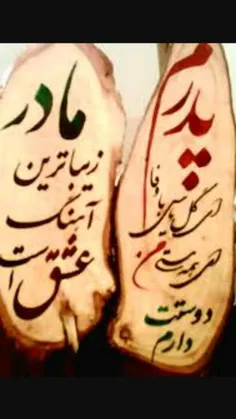 پدرم
ای گل یاس با وفا
ای همه هستی من
دوستت
دارم
مادر
زیباترین
آهنگ
عشق است